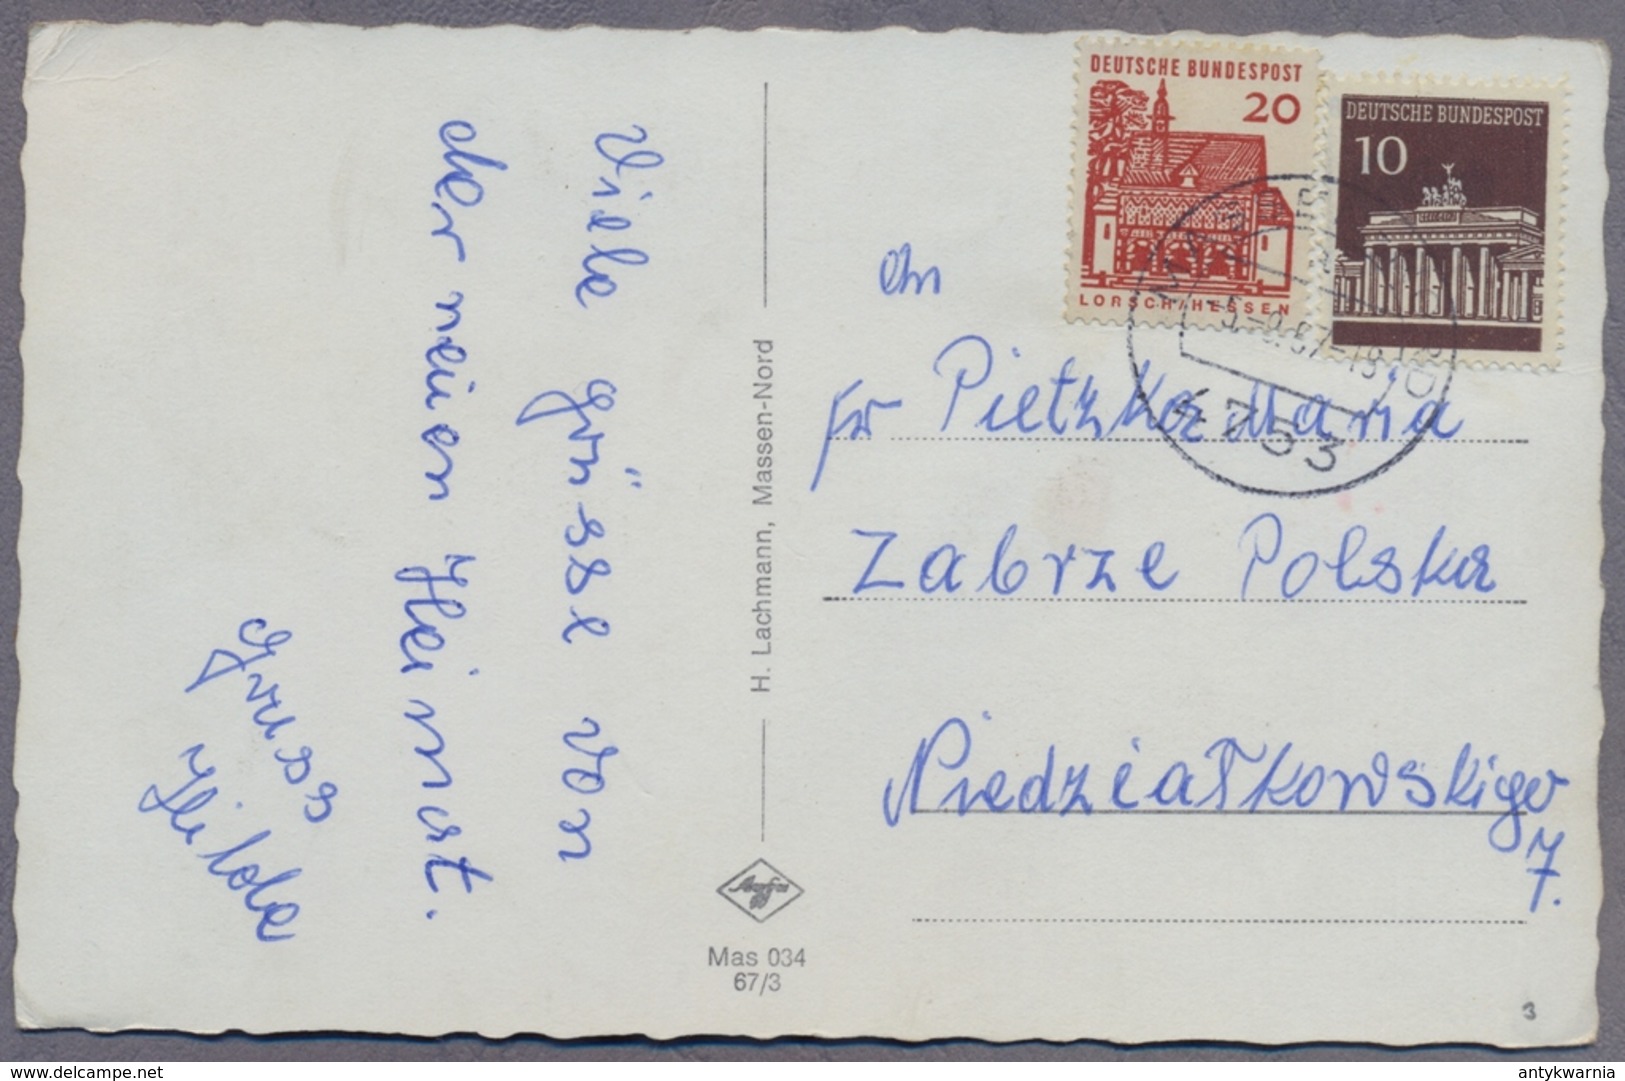 Viele Grüsse von
der neuen Heimat.
Gruss
Hilde
H. Lachmann, Massen-Nord
Mas 034
67/3
DEUTSCHE BUNDESPOST
20
LORSCH/HESSEN
DEUTSCHE BUNDESPOST
10
4753
An
Fr Pietzka Maria
Zabrze Polska
Niedziałkowskiego
7.
3
www.delcampe.net
antykwarnia